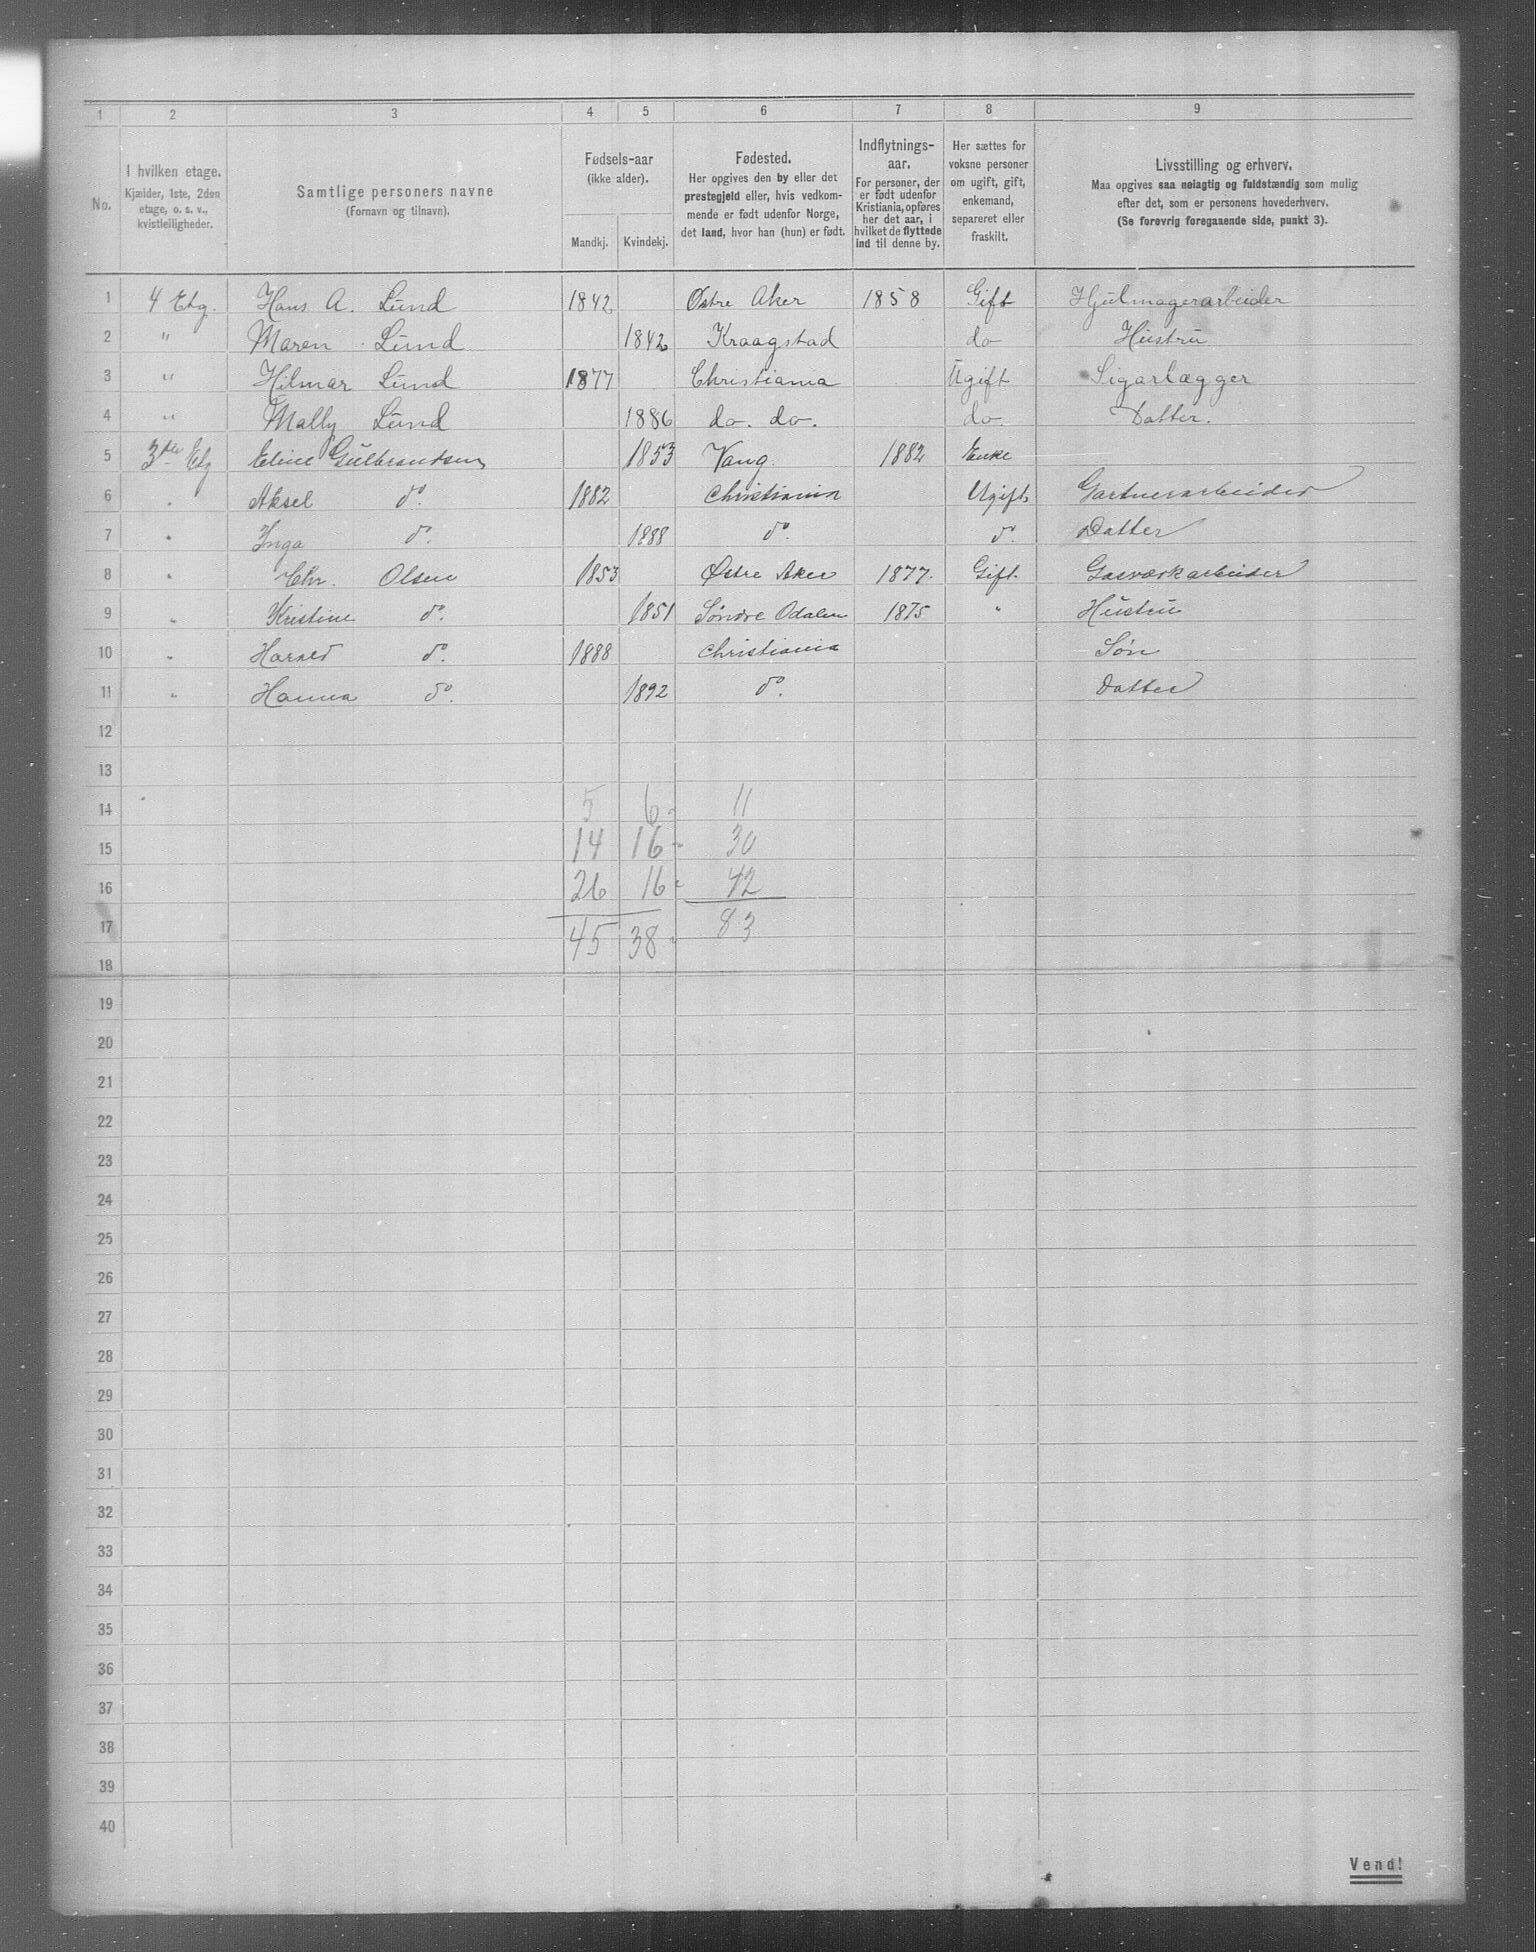 1 2 3 4 5 6 7 8 9
No.
I hvilken etage.
Kjælder, 1ste, 2den
etage, o. s. v.,
kvistleiligheder.
Samtlige personers navne
(Fornavn og tilnavn).
Fødsels-aar
(ikke alder).
Mandkj. Kvindekj.
Fødested.
Her opgives den by eller det
prestegjeld eller, hvis vedkom-
mende er født udenfor Norge,
det land, hvor han (hun) er født.
Indflytnings-
aar.
For personer, der
er født udenfor
Kristiania, opføres
her det aar, i
hvilket de flyttede
ind til denne by.
Her sættes for
voksne personer
om ugift, gift,
enkemand,
separeret eller
fraskilt.
Livsstilling og erhverv.
Maa opgives saa nøiagtig og fuldstændig som mulig
efter det, som er personens hovederhverv.
(Se forøvrig foregaaende side, punkt 3).
1 4 Etg. Hans A. Lund 1842 Østre Aker 1858 Gift Hjulmagerarbeider
2 " Maren Lund 1842 Kraagstad do Hustru
3 " Hilmar Lund 1877 Christiania Ugift Sigarlægger
4 " Mally Lund 1886 do. do. do. Datter.
5 3die Etg Eline Gulbrandsen 1853 Vang. 1882 Enke
6 " Aksel do. 1882 Christiania Ugift Gartnerarbeider
7 " Inga do. 1888 do. do. Datter
8 " Chr. Olsen 1853 Østre Aker 1877. Gift. Gasværkarbeider
9 " Kristine do. 1851 Søndre Odalen 1875 " Hustru
10 " Harald do. 1888 Christiania Søn
11 " Hanna do. 1892 do. Datter
12
13
14 5 6 - 11
15 14 16 - 30
16 26 16 - 42
17 45 38 - 83
18
19
20
21
22
23
24
25
26
27
28
29
30
31
32
33
34
35
36
37
38
39
40
Vend!